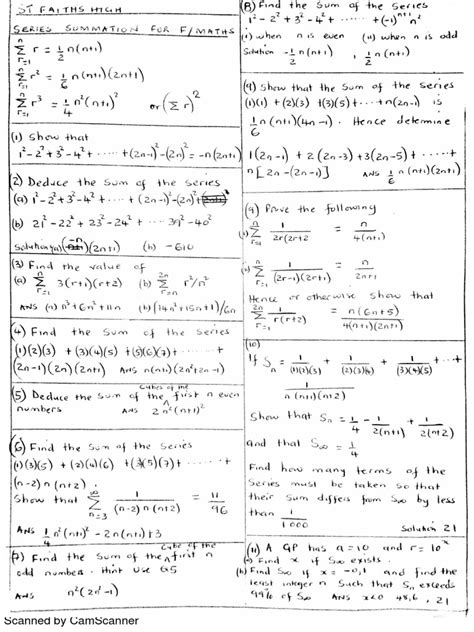 ST FAITHS HIGH
SERIES SUMMATION FOR F/MATHS
n∑r=1 r = 1/2 n(n+1)
n∑r=1 r² = 1/6 n(n+1)(2n+1)
n∑r=1 r³ = 1/4 n²(n+1)² or (∑r)²
(1) Show that
1²-2²+3²-4²+ ····· +(2n-1)²-(2n)² = -n(2n+1)
(2) Deduce the sum of the series
(a) 1²-2²+3²-4²+ ···· +(2n-1)²-(2n)²+
(b) 21²-22²+23²-24²+ ···· 39²-40²
Solution (a) (-n)(2n+1) (b) -610
(3) Find the value of
(a) n∑r=1 3(r+1)(r+2) (b) 2n∑r=1 r²/n²
ANS (a) n³+6n²+11n (b) (14n²+15n+1)/6n
(4) Find the sum of the series
(1)(2)(3) + (3)(4)(5) + (5)(6)(7) + ······
(2n-1)(2n)(2n+1) ANS n(n+1)(2n²+2n-1)
(5) Deduce the sum of the cubes of the first n even
numbers ANS 2n²(n+1)²
(6) Find the sum of the series
(1)(3)(5) + (2)(4)(6) + (3)(5)(7) + ······ +
(n-2)n(n+2)
Show that ∞∑n=3 1/((n-2)n(n+2)) = 11/96
ANS 1/4 n²(n+1)² - 2n(n+1)+3
(7) Find the sum of the cube of the first n
odd numbers. Hint use Q5
n²(2n²-1)
(8) Find the sum of the series
1²-2²+3²-4²+ ······ +(-1)ⁿ⁺¹n²
(i) when n is even (ii) when n is odd
Solution -1/2 n(n+1) 1/2 n(n+1)
(9) Show that the sum of the series
(1)(1) + (2)(3) + (3)(5) + ···· + n(2n-1) is
1/6 n(n+1)(4n-1). Hence determine
1(2n-1) + 2(2n-3) + 3(2n-5) + ····· +
n[2n-(2n-1)] ANS 1/6 n(n+1)(2n+1)
(9) Prove the following
(i) n∑r=1 1/(2r(2r+2)) = n/(4(n+1))
(ii) n∑r=1 1/((2r-1)(2r+1)) = n/(2n+1)
Hence or otherwise show that
2n∑r=1 1/(r(r+2)) = n(6n+5)/(4(n+1)(2n+1))
(10)
If Sn = 1/((1)(2)(3)) + 1/((2)(3)(4)) + 1/((3)(4)(5)) + ··+
1/(n(n+1)(n+2))
Show that Sn = 1/4 - 1/(2(n+1)) + 1/(2(n+2))
and that S∞ = 1/4
Find how many terms of the
Series must be taken so that
their sum differs from S∞ by less
than 1/1000 Solution 21
(11) A GP has a=10 and r=10ˣ
(a) Find x if S∞ exists.
(b) Find S∞ if x = -0,1 and find the
least integer n such that Sn exceeds
99% of S∞ ANS x<0 48,6 , 21
Scanned by CamScanner